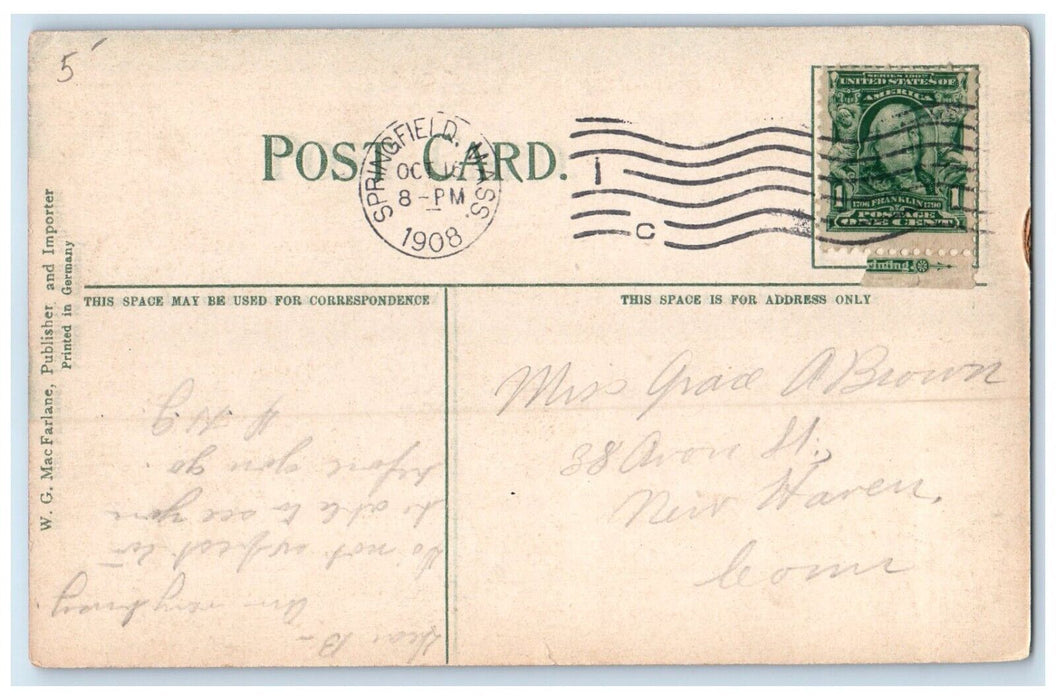 5
POST CARD.
SPRINGFIELD, MASS.
OCT 16
8-PM
1908
1
C
SERIES 1902
UNITED STATES OF
AMERICA
1 1706 FRANKLIN 1790 1
POSTAGE
ONE CENT
rinting.
W. G. MacFarlane, Publisher and Importer
Printed in Germany
THIS SPACE MAY BE USED FOR CORRESPONDENCE
THIS SPACE IS FOR ADDRESS ONLY
Dear B-
Am very busy.
Do not expect to
be able to see you
before you go.
H. N. G.
Miss Grace A Brown
38 Avon St.,
New Haven,
Conn